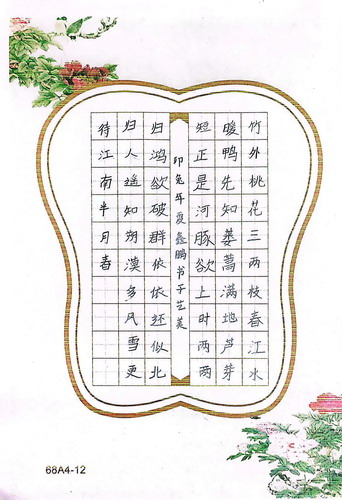 竹外桃花三两枝春江水
暖鸭先知蒌蒿满地芦芽
短正是河豚欲上时两两
卯兔年夏鑫鹏书于艺美
归鸿欲破群依依还似北
归人遥知朔漠多风雪更
待江南半月春
68A4-12